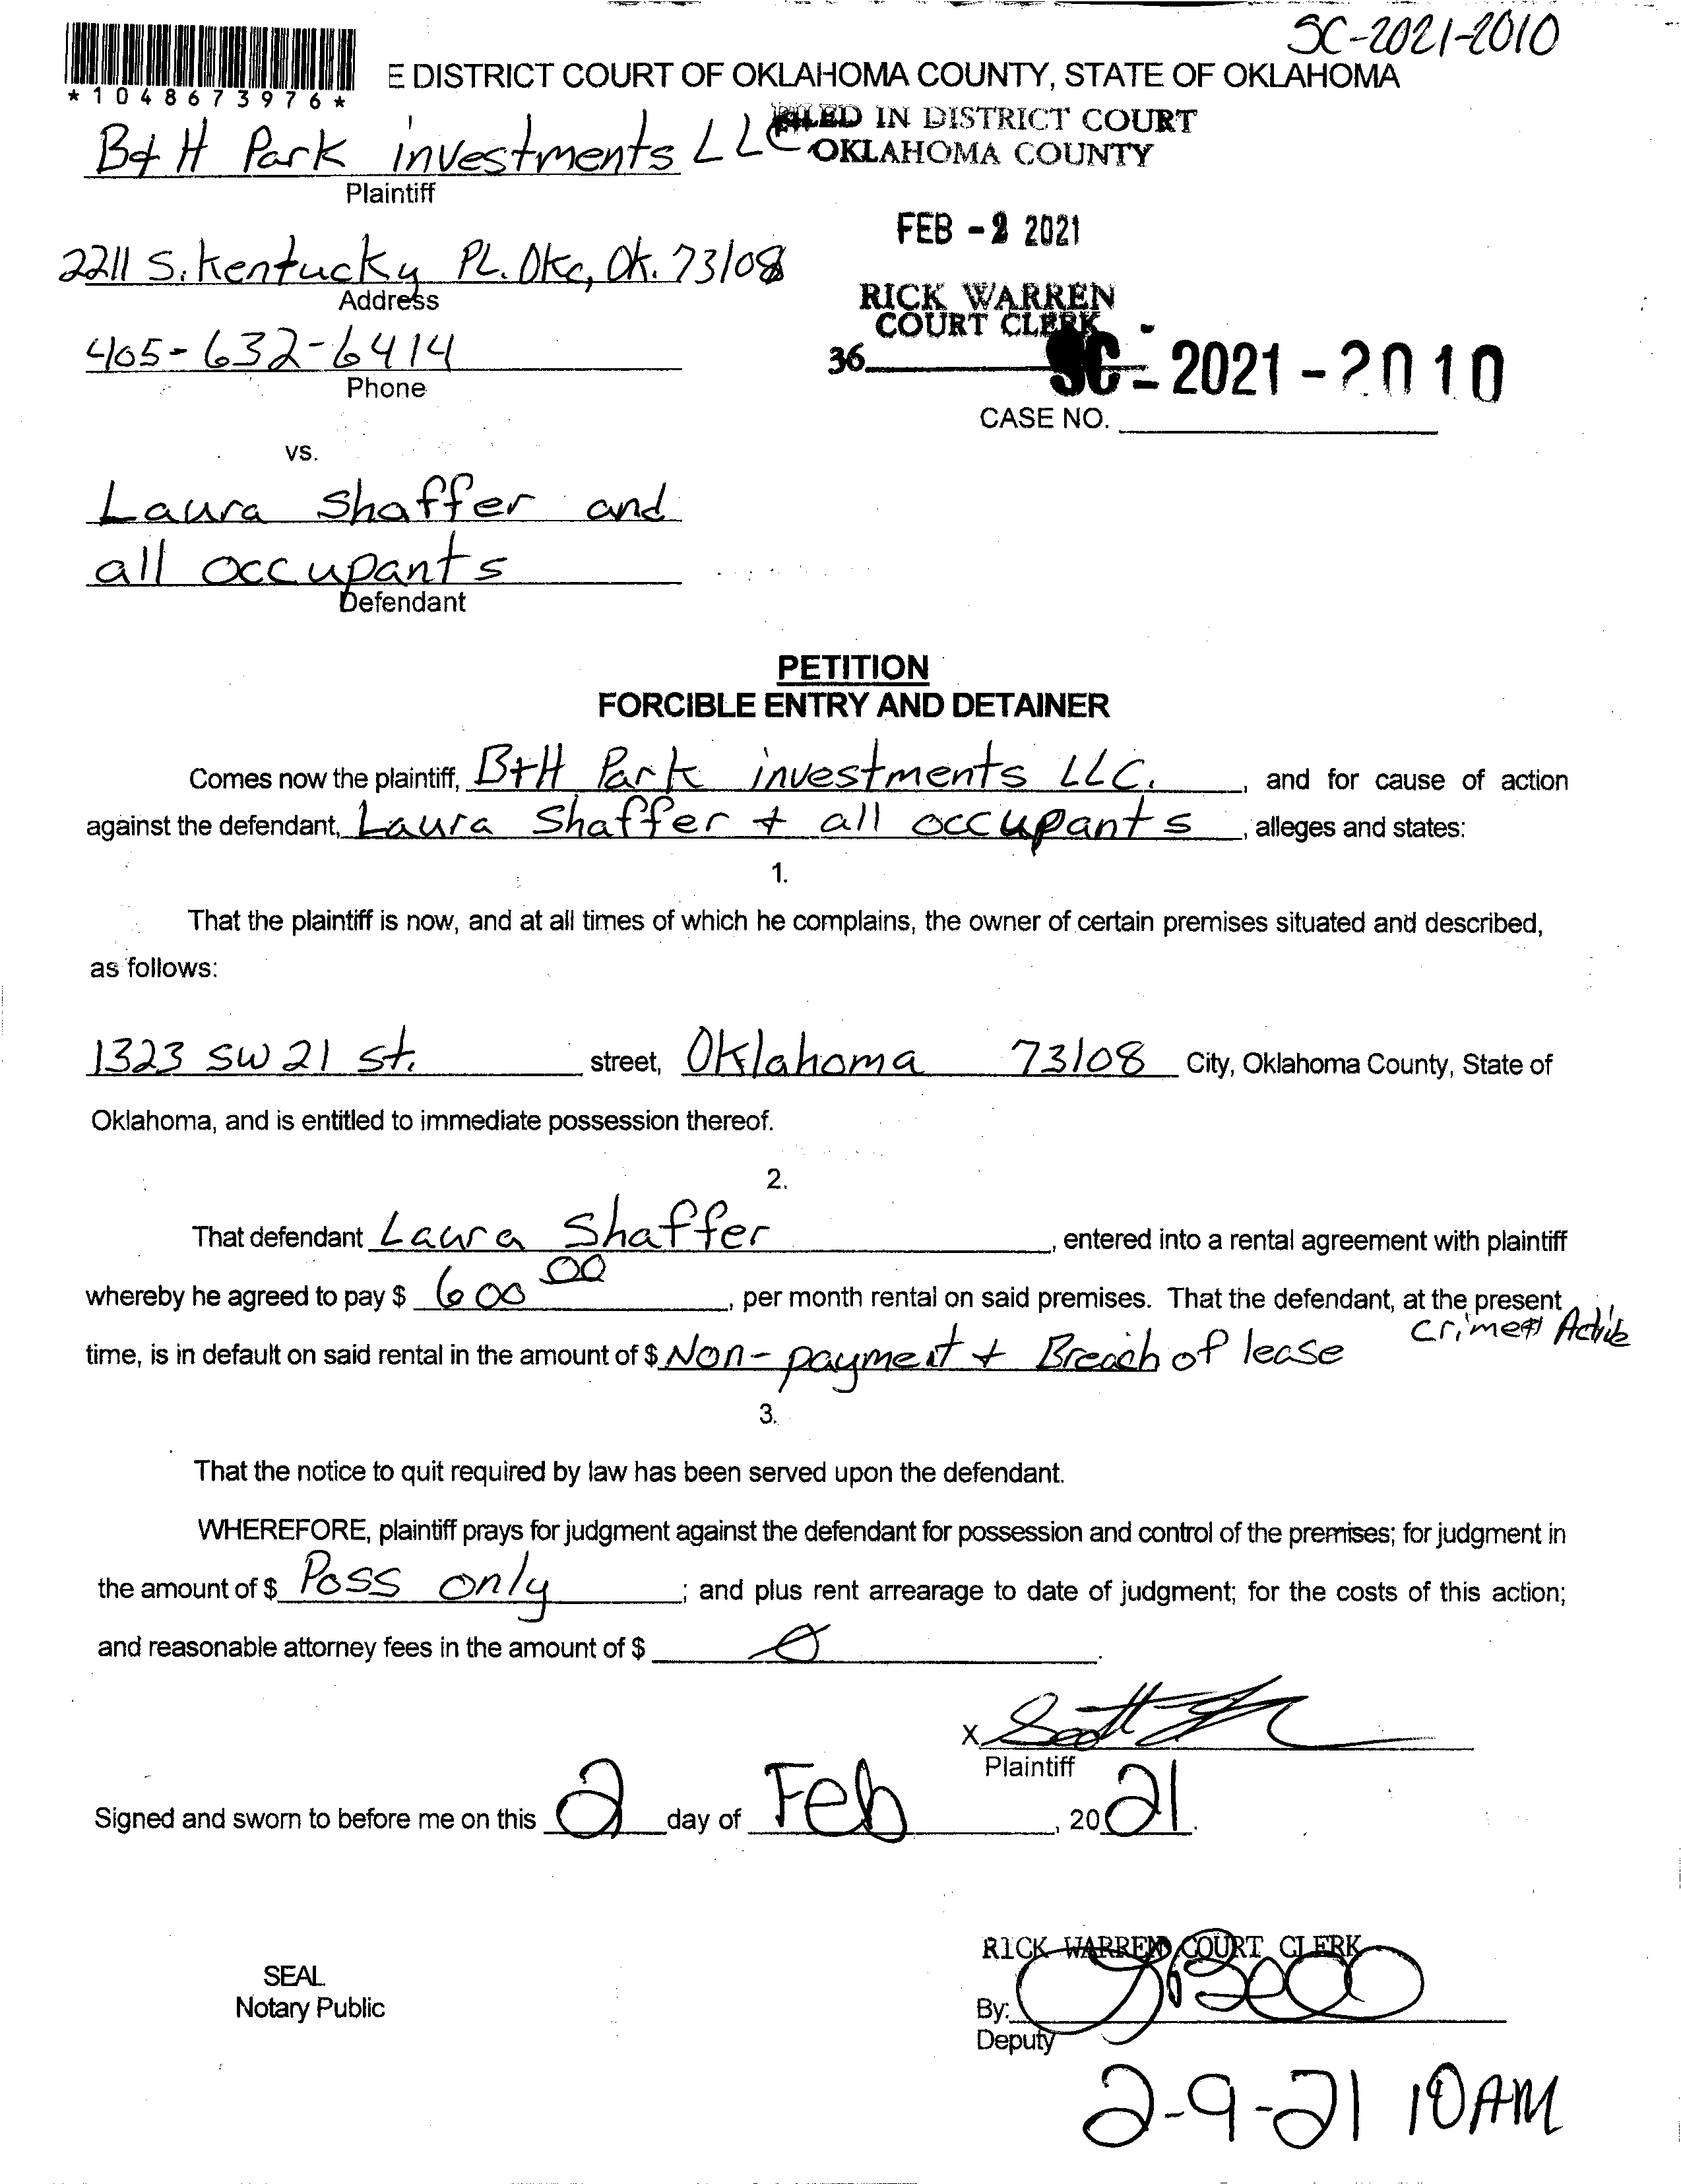 SC-2021-2010
*1048673976*
E DISTRICT COURT OF OKLAHOMA COUNTY, STATE OF OKLAHOMA
FILED IN DISTRICT COURT
OKLAHOMA COUNTY
B+H Park investments LLC
Plaintiff
FEB -2 2021
2211 S. Kentucky PL. Okc, Ok. 73108
Address
RICK WARREN
COURT CLERK
405-632-6414
Phone
36
SC - 2021 - 2010
CASE NO.
vs.
Laura Shaffer and
all occupants
Defendant
PETITION
FORCIBLE ENTRY AND DETAINER
Comes now the plaintiff, B+H Park investments LLC. , and for cause of action
against the defendant, Laura Shaffer + all occupants , alleges and states:
1.
That the plaintiff is now, and at all times of which he complains, the owner of certain premises situated and described,
as follows:
1323 SW 21 st. street, Oklahoma 73108 City, Oklahoma County, State of
Oklahoma, and is entitled to immediate possession thereof.
2.
That defendant Laura Shaffer , entered into a rental agreement with plaintiff
whereby he agreed to pay $ 600 00 , per month rental on said premises. That the defendant, at the present
time, is in default on said rental in the amount of $ Non-payment + Breach of lease
3.
That the notice to quit required by law has been served upon the defendant.
WHEREFORE, plaintiff prays for judgment against the defendant for possession and control of the premises; for judgment in
the amount of $ Poss only ; and plus rent arrearage to date of judgment; for the costs of this action;
and reasonable attorney fees in the amount of $ 0 .
X Scott
Plaintiff
Signed and sworn to before me on this 2 day of Feb , 2021.
RICK WARREN COURT CLERK
SEAL
Notary Public
By:
Deputy
2-9-21 10AM